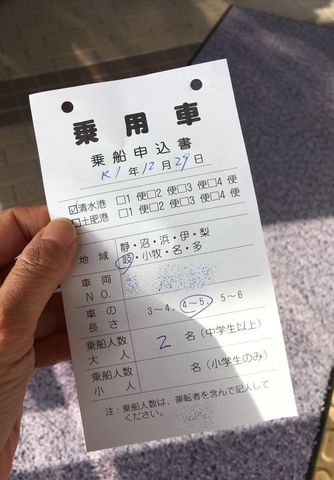 乗用車
乗船申込書
R1年12月29日
☑清水港 □1便□2便□3便□4便
□土肥港 □1便□2便□3便□4便
地域 静・沼・浜・伊・梨
岐・小牧・名・多
車両
NO.
車の
長さ 3~4, 4~5, 5~6
乗船人数
大人 2 名(中学生以上)
乗船人数
小人 名(小学生のみ)
注:乗船人数は、運転者を含んで記入して
ください。